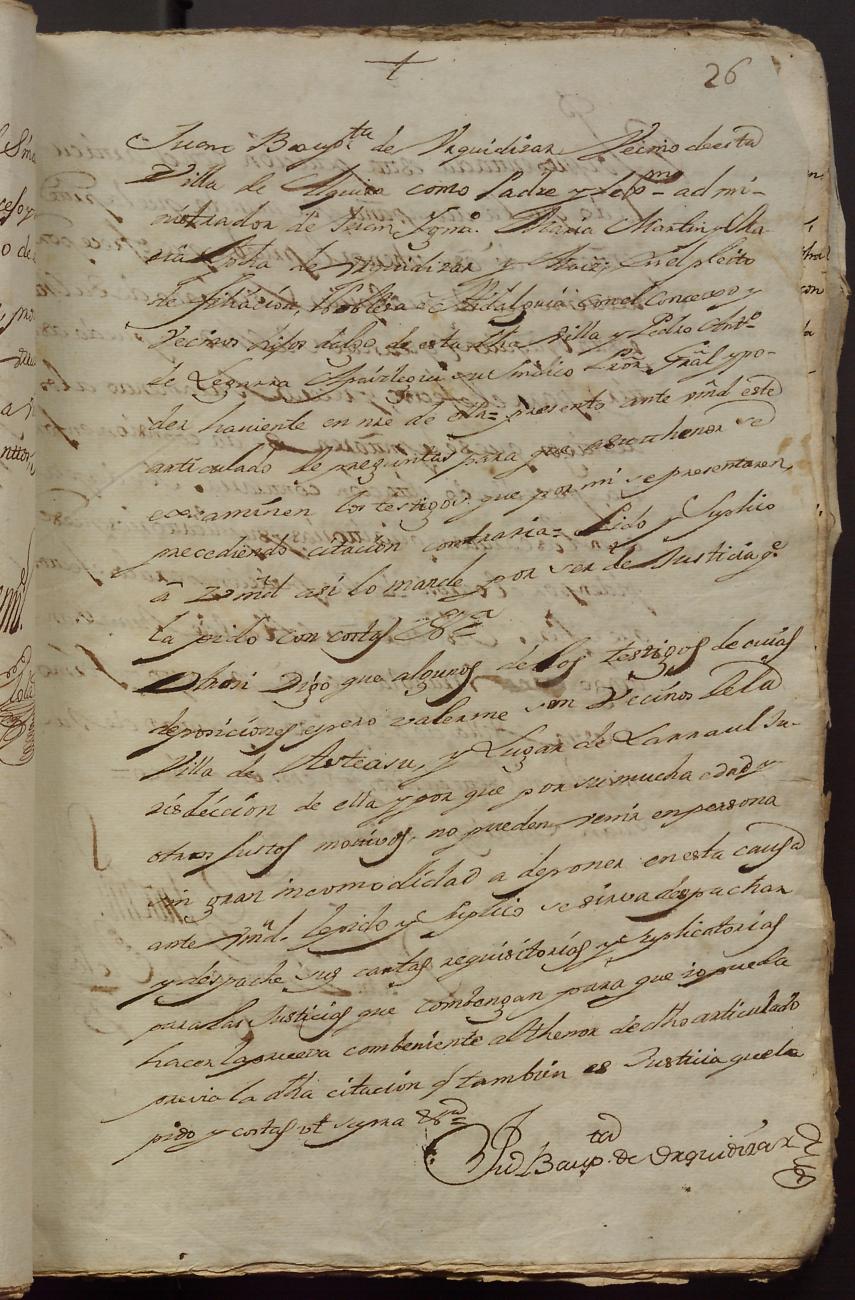 +
26
Juan Baup.ta de Urquidizar Vecino de esta
Villa de como Padre y lex.mo admi-
nistrador de Juan Ygna.o Maria Martin y Ma-
ria de Urquidizar y en el pleito
de filiacion, Nobleza e Hidalguia con el Concexo y
Vecinos hijos dalgo de esta dha Villa y Pedro Ant.o
de Legarra su Sindico Pror. Gral y po-
der haviente en nre de ella= presento ante vmd este
articulado de preguntas para que a su thenor se
examinen los testigos que por mi se presentaren,
precediendo citacion contraria= Pido y Suplico
à vmd asi lo mande por ser de Justicia q.e
la pido con costas &.a
Otrosi Digo que algunos de los testigos de cuias
deposiciones espero valerme son Vecinos de la
Villa de Asteasu, y Lugar de Larraul Ju-
risdiccion de ella y por que por su mucha edad y
otros justos motivos, no pueden venir en persona
sin gran incomodidad a deponer en esta causa
ante Vmd. le pido y Suplico se sirva despachar
y despache sus cartas requisitorias y suplicatorias
para las Justicias que combengan para que io pueda
hacer la prueva combeniente al thenor de dho articulado
previa la dha citacion q tambien es Justicia que la
pido y costas ut supra &.a
Ju Baup.ta de Urquidizar